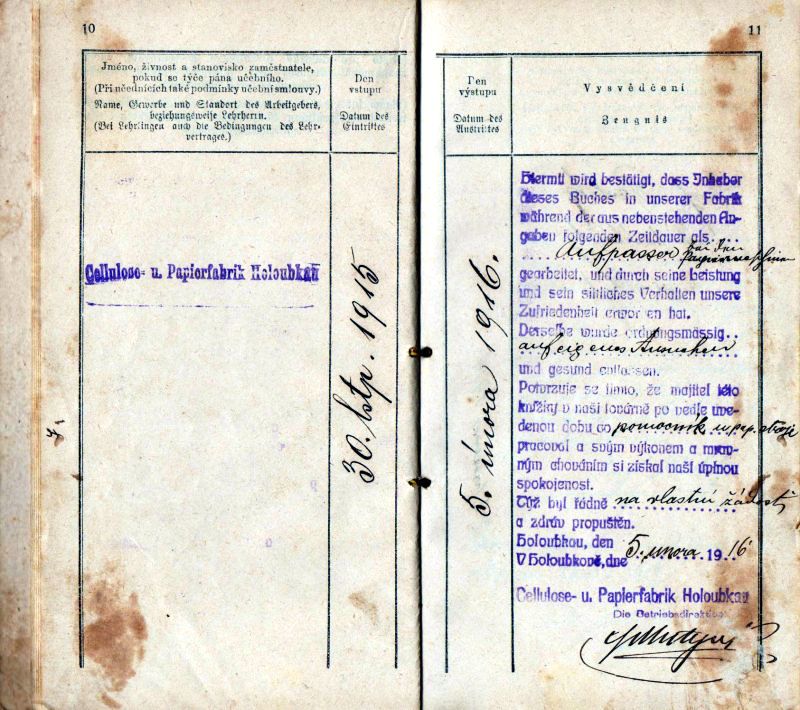 10
Jméno, živnost a stanovisko zaměstnatele,
pokud se týče pána učebního.
(Při učednících také podmínky učební smlouvy.)
Name, Gewerbe und Standort des Arbeitgebers,
beziehungsweise Lehrherrn.
(Bei Lehrlingen auch die Bedingungen des Lehr-
vertrages.)
Den
vstupu
Datum des
Eintrittes
Cellulose- u. Papierfabrik Holoubkau
30. listp. 1915
11
Den
výstupu
Datum des
Austrittes
Vysvědčení
Zeugnis
5. února 1916.
Hiermit wird bestätigt, dass Inhaber
dieses Buches in unserer Fabrik
während der aus nebenstehenden An-
gaben folgenden Zeitdauer als
Aufpasser bei den
Papiermaschinen
gearbeitet, und durch seine Leistung
und sein sittliches Verhalten unsere
Zufriedenheit erworben hat.
Derselbe wurde ordnungsmässig
auf eigenes Ansuchen
und gesund entlassen.
Potvrzuje se tímto, že majitel této
knížky v naší továrně po vedle uve-
denou dobu co pomocník u pap. stroje
pracoval a svým výkonem a mrav-
ným chováním si získal naší úplnou
spokojenost.
Týž byl řádně na vlastní žádost
a zdráv propuštěn.
Holoubkau, den
V Holoubkově, dne 5. února 1916
Cellulose- u. Papierfabrik Holoubkau
Die Betriebsdirektion